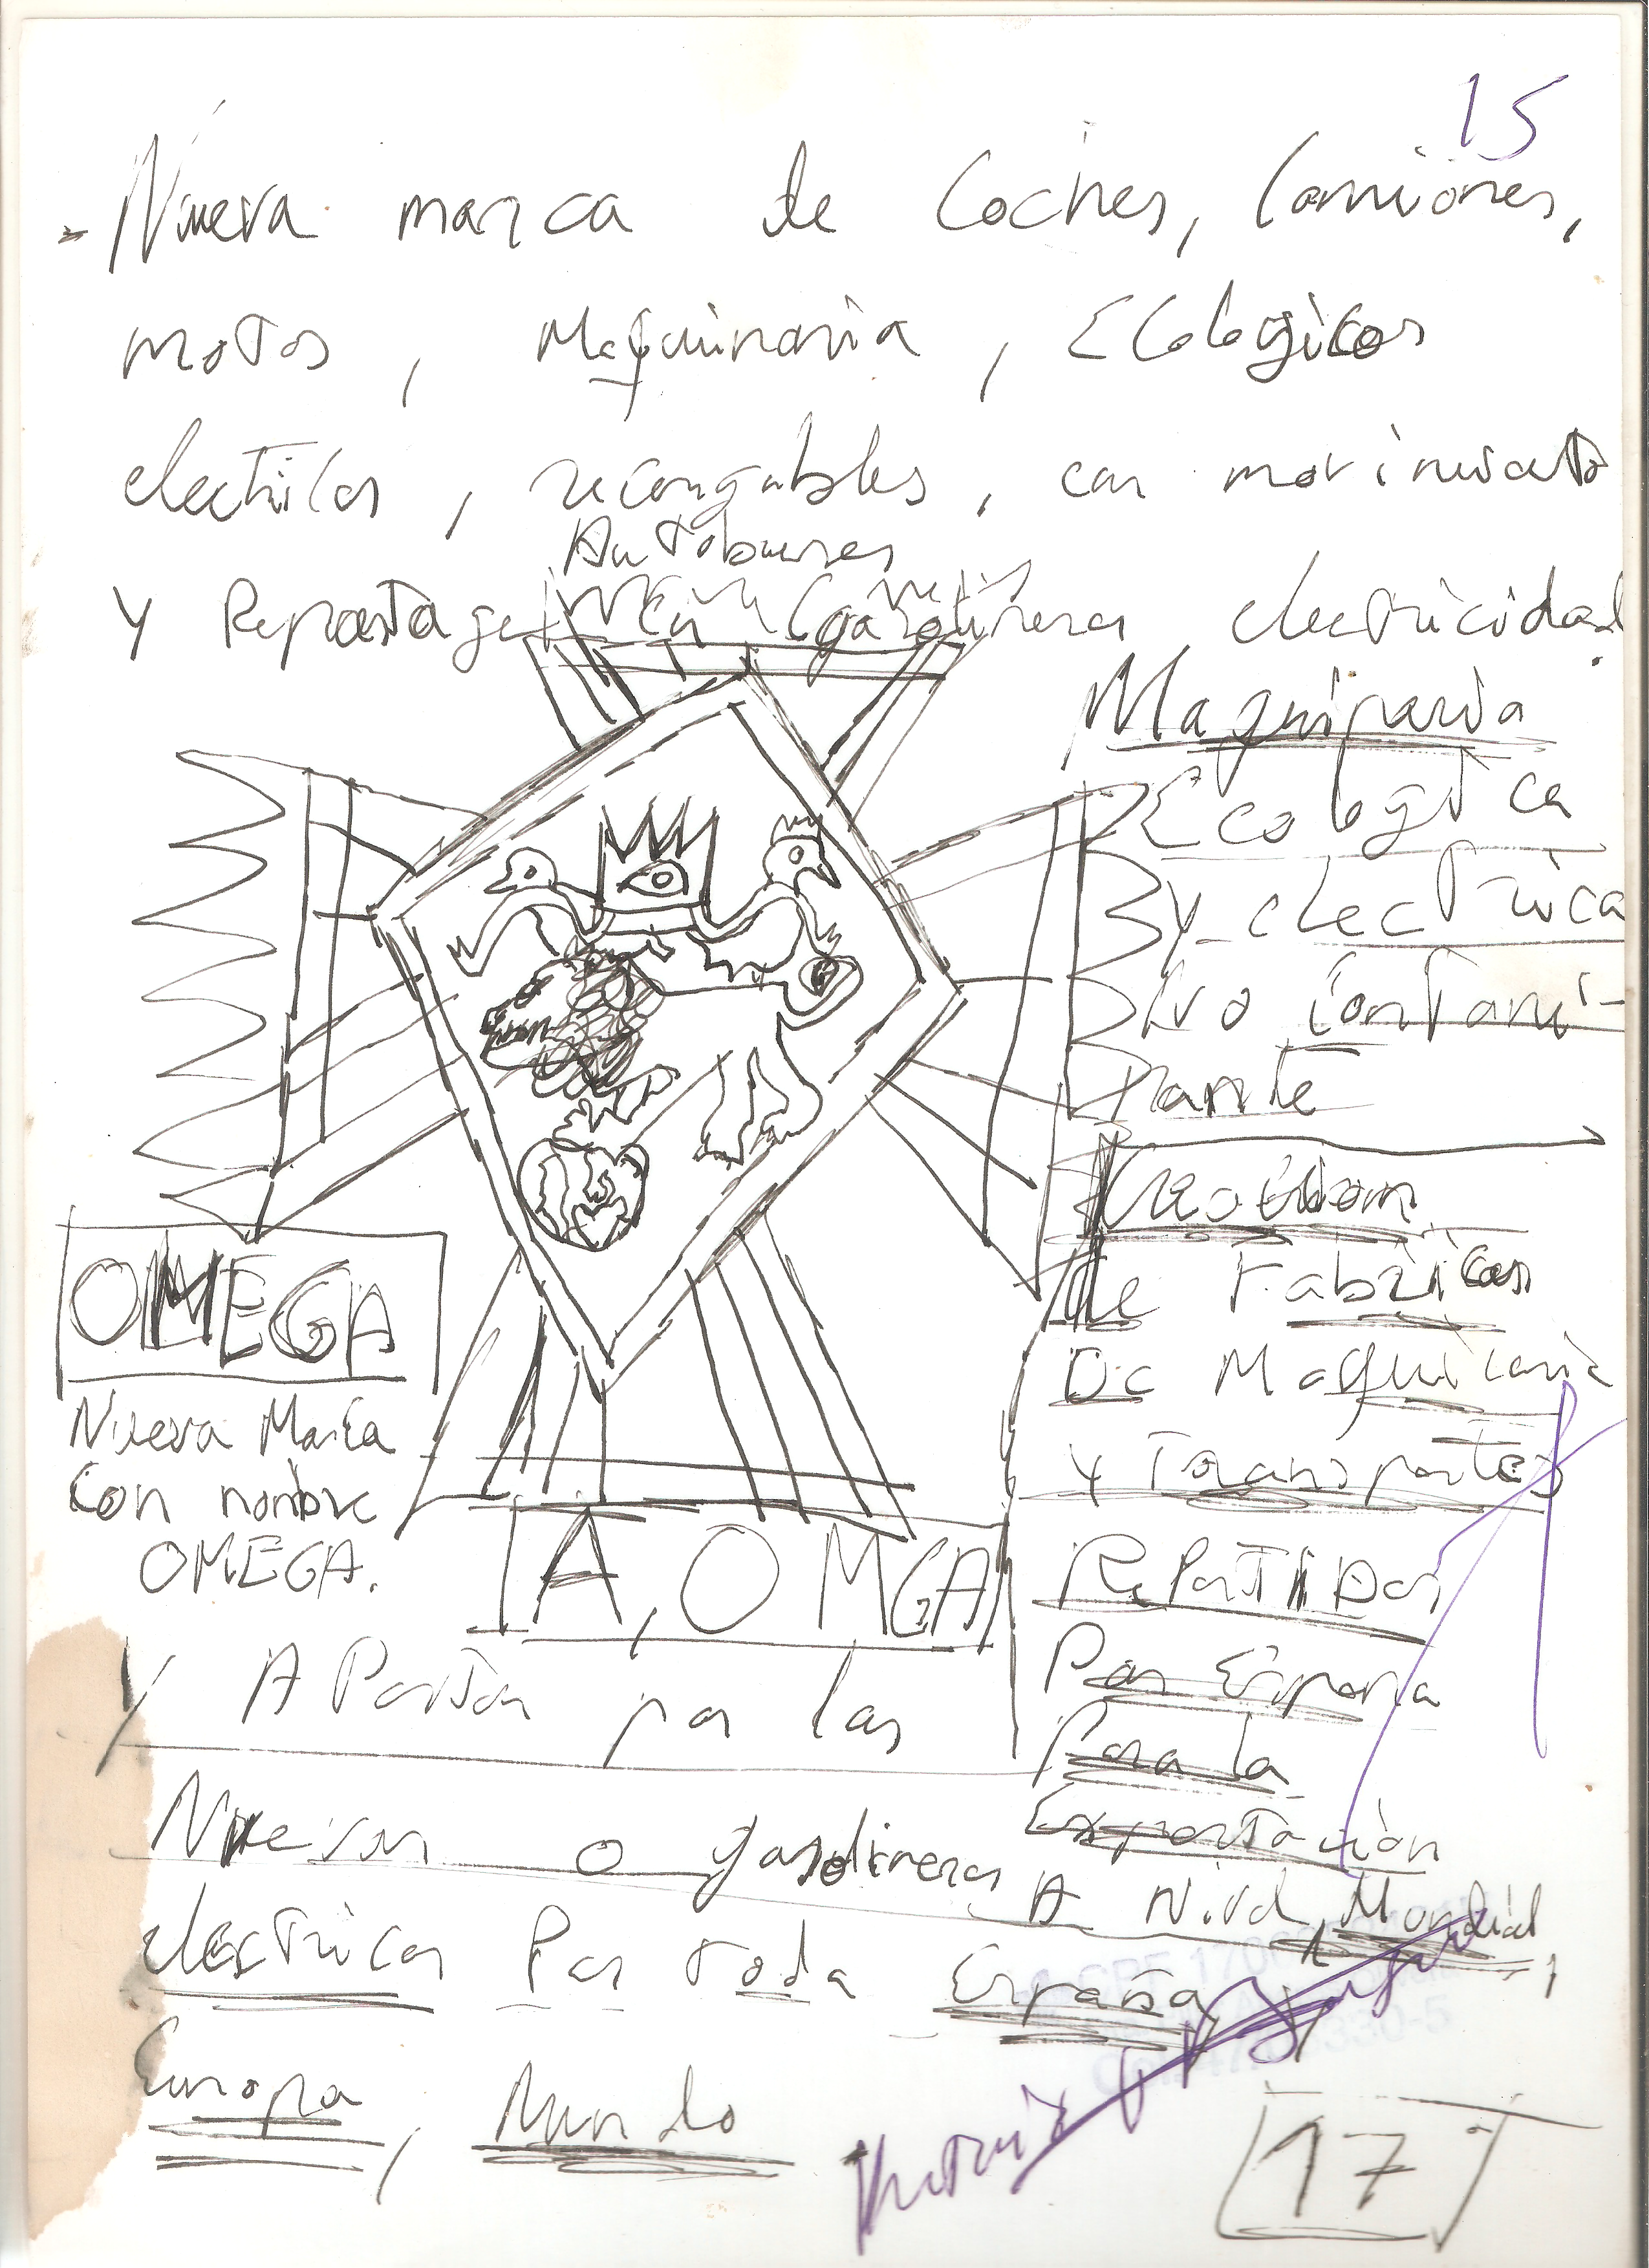 15
- Nueva marca de Coches, Camiones,
motos, Maquinaria, Ecologicos
electricos, recargables, con movimiento
Autobuses
Y Repostages en Gasolineras electricidad
Maquinaria
Ecologica
y electrica
No Contami-
nante
Creacion
de Fabricas
De Maquinaria
y Transportes
RePartiDas
Por España
Para la
Exportación
A Nivel Mundial,
OMEGA
Nueva Marca
Con nombre
OMEGA.
A, OMGA
Y A Partar por las
Nuevas o gasolineras
electricas Por toda España,
Europa, Mundo
17